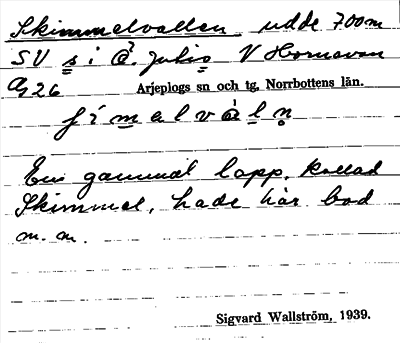 Skimmelvallen, udde 700 m
SV s i Ö. Juhis V Hornavan
Ag 26 Arjeplogs sn och tg, Norrbottens län.
En gammal lapp, kallad
Skimmel, hade här bod
m.m.
Sigvard Wallström, 1939.